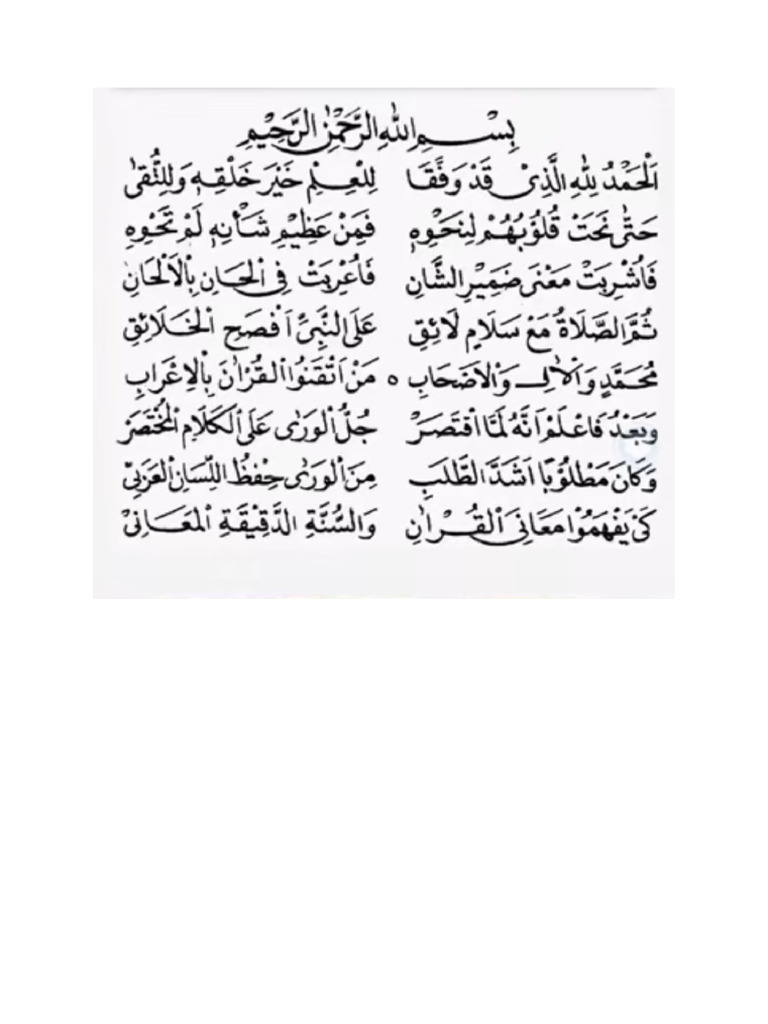 بِسْمِ اللهِ الرَّحْمٰنِ الرَّحِيْمِ
اَلْحَمْدُ لِلّٰهِ الَّذِيْ قَدْ وَفَّقَا لِلْعِلْمِ خَيْرَ خَلْقِهٖ وَلِلتُّقٰى
حَتّٰى نَحَتْ قُلُوْبُهُمْ لِنَحْوِهٖ فَمِنْ عَظِيْمِ شَأْنِهٖ لَمْ تَحْوِهٖ
فَاُشْرِبَتْ مَعْنٰى ضَمِيْرِ الشَّانِ فَاُعْرِبَتْ فِي الْحَانِ بِالْاَلْحَانِ
ثُمَّ الصَّلَاةُ مَعْ سَلَامٍ لَائِقِ عَلَى النَّبِيِّ اَفْصَحِ الْخَلَائِقِ
مُحَمَّدٍ وَالْاٰلِ وَالْاَصْحَابِ ۞ مَنْ اَتْقَنُوا الْقُرْاٰنَ بِالْاِعْرَابِ
وَبَعْدُ فَاعْلَمْ اَنَّهُ لَمَّا اقْتَصَرْ جُلُّ الْوَرٰى عَلَى الْكَلَامِ الْمُخْتَصَرْ
وَكَانَ مَطْلُوْبًا اَشَدَّ الطَّلَبِ مِنَ الْوَرٰى حِفْظُ اللِّسَانِ الْعَرَبِيْ
كَيْ يَفْهَمُوْا مَعَانِيَ الْقُرْاٰنِ وَالسُّنَّةِ الدَّقِيْقَةِ الْمَعَانِيْ